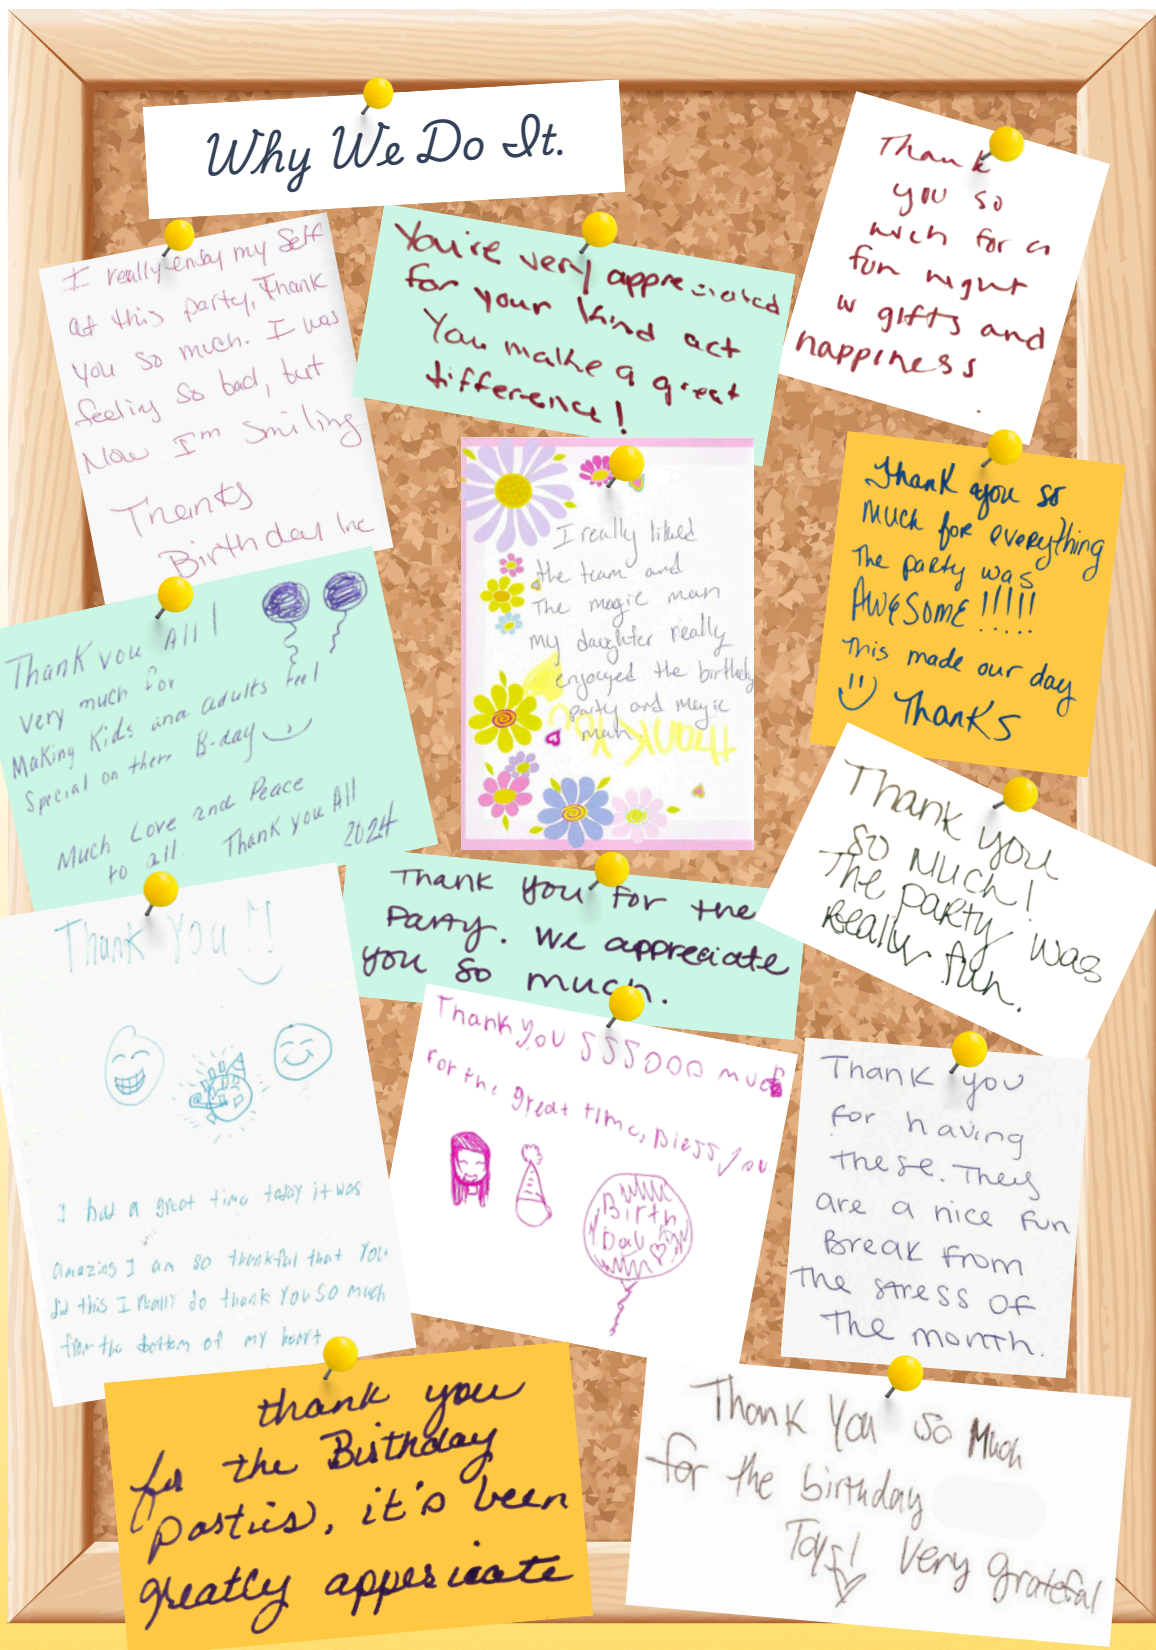 Why We Do It.
I really enjoy my self
at this party, Thank
you so much. I was
feeling so bad, but
Now I'm smiling
Thanks
Birthday Inc
You're very appreciated
for your kind act
You make a great
difference!
Thank
you so
much for a
fun night
w gifts and
happiness
I really liked
the team and
The magic man
my daughter really
enjoyed the birthday
party and Magic
man.
THANK YOU
Thank you so
much for everything
The party was
AWESOME !!!!!
This made our day
Thanks
Thank you All!
very much for
Making Kids and adults feel
Special on there B-day
Much Love and Peace
to all. Thank you All
2024
Thank you
so Much!
The party was
Really fun.
Thank you for the
Party. We appreciate
you so much.
Thank You!!
I had a great time today it was
amazing I am so thankful that You
did this I Really do thank You so much
from the bottom of my heart
Thank you sssooo much
For the great time, Bless you.
Birth
Day
Thank you
for having
these. They
are a nice fun
Break from
The stress of
The month.
thank you
for the Birthday
Parties, it's been
greatly appericate
Thank You so Much
for the birthday
Toys! Very grateful